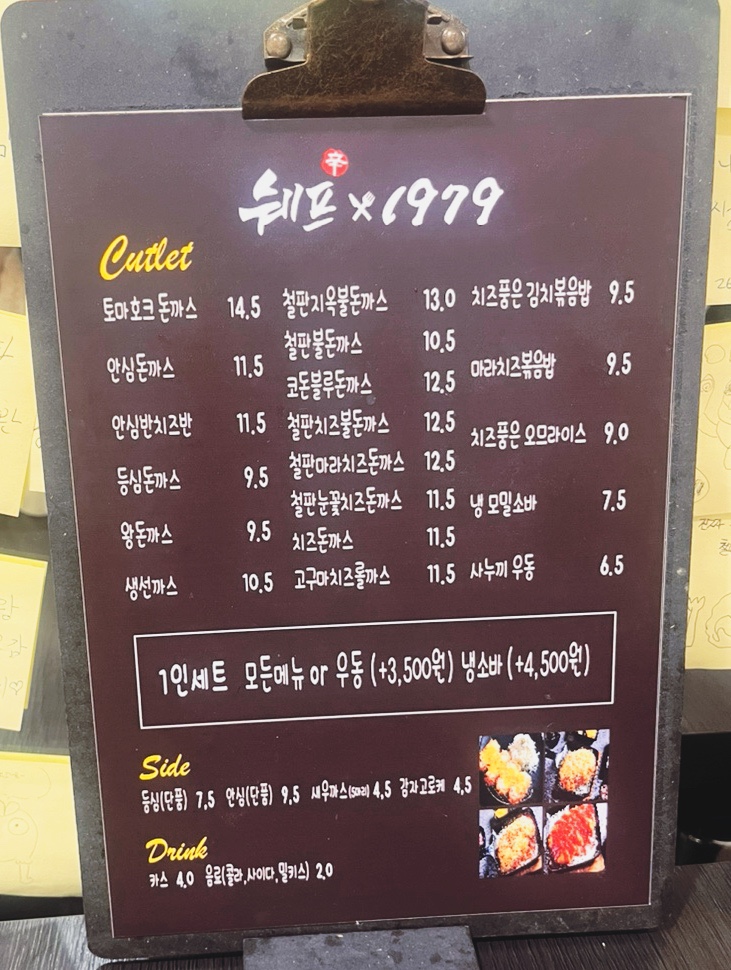 辛
쉐프×1979
Cutlet
토마호크 돈까스 14.5
안심돈까스 11.5
안심반치즈반 11.5
등심돈까스 9.5
왕돈까스 9.5
생선까스 10.5
철판지옥불돈까스 13.0
철판불돈까스 10.5
코돈블루돈까스 12.5
철판치즈불돈까스 12.5
철판마라치즈돈까스 12.5
철판눈꽃치즈돈까스 11.5
치즈돈까스 11.5
고구마치즈롤까스 11.5
치즈품은 김치볶음밥 9.5
마라치즈볶음밥 9.5
치즈품은 오므라이스 9.0
냉 모밀소바 7.5
사누끼 우동 6.5
1인세트 모든메뉴 or 우동 (+3,500원) 냉소바 (+4,500원)
Side
등심(단품) 7.5 안심(단품) 9.5 새우까스(5마리) 4.5 감자고로케 4.5
Drink
카스 4.0 음료(콜라,사이다,밀키스) 2.0